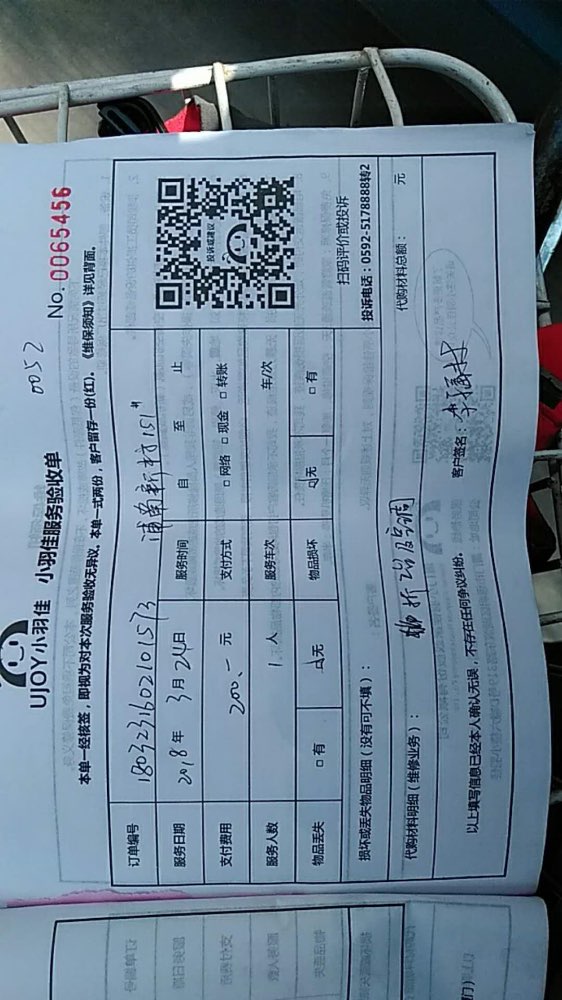 0052
UJOY小羽佳 小羽佳服务验收单
No. 0065456
本单一经核签，即视为对本次服务验收无异议。本单一式两份，客户留存一份(红)。《维保须知》详见背面。
订单编号 180323160210 1573 浦南新村151#
服务日期 2018年 3月24日 服务时间 自 至 止
支付费用 200.- 元 支付方式 □网络 □现金 □转账
服务人数 1 人 服务车次 车/次
物品丢失 □有 ☑无 物品损坏 ☑无 □有
投诉或建议
扫码评价或投诉
投诉电话：0592-5178888转2
损坏或丢失物品明细（没有可不填）：
代购材料明细（维修业务）： 代购材料总额： 元
以上填写信息已经本人确认无误，不存在任何争议纠纷。 客户签名：